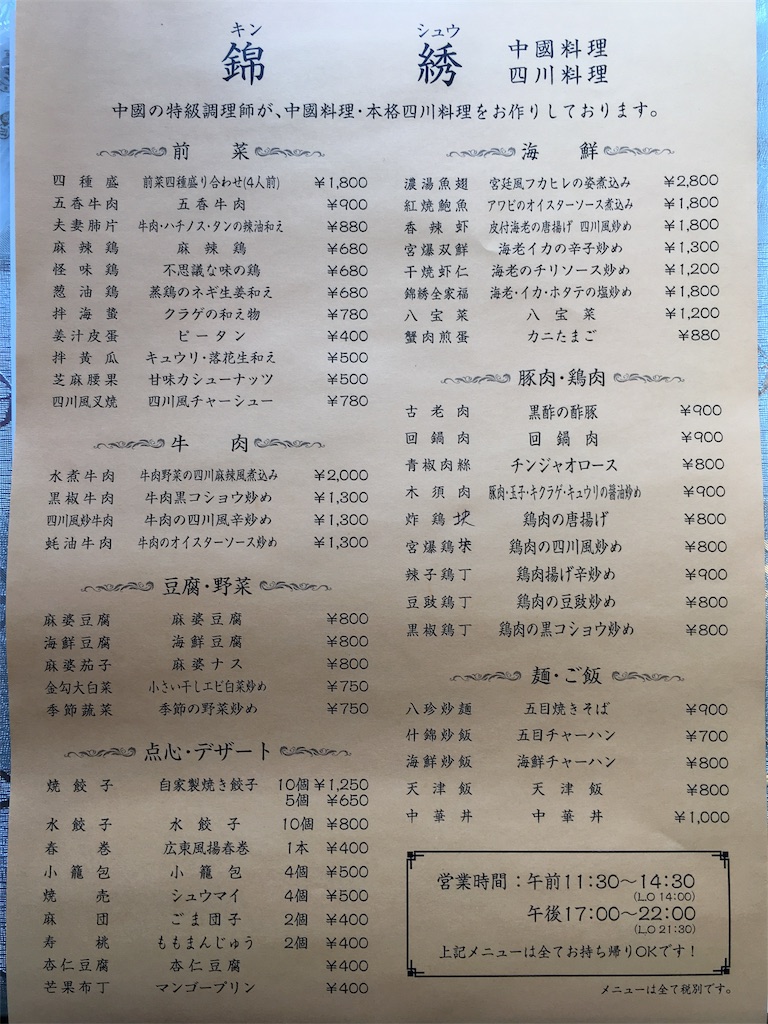 キン シュウ
錦 綉
中國料理
四川料理
中國の特級調理師が、中國料理・本格四川料理をお作りしております。
前菜
四種盛 前菜四種盛り合わせ(4人前) ¥1,800
五香牛肉 五香牛肉 ¥900
夫妻肺片 牛肉・ハチノス・タンの辣油和え ¥880
麻辣鶏 麻辣鶏 ¥680
怪味鶏 不思議な味の鶏 ¥680
葱油鶏 蒸鶏のネギ生姜和え ¥680
拌海蜇 クラゲの和え物 ¥780
姜汁皮蛋 ピータン ¥400
拌黄瓜 キュウリ・落花生和え ¥500
芝麻腰果 甘味カシューナッツ ¥500
四川風叉焼 四川風チャーシュー ¥780
牛肉
水煮牛肉 牛肉野菜の四川麻辣風煮込み ¥2,000
黒椒牛肉 牛肉黒コショウ炒め ¥1,300
四川風炒牛肉 牛肉の四川風辛炒め ¥1,300
蚝油牛肉 牛肉のオイスターソース炒め ¥1,300
豆腐・野菜
麻婆豆腐 麻婆豆腐 ¥800
海鮮豆腐 海鮮豆腐 ¥800
麻婆茄子 麻婆ナス ¥800
金勾大白菜 小さい干しエビ白菜炒め ¥750
季節蔬菜 季節の野菜炒め ¥750
点心・デザート
焼餃子 自家製焼き餃子 10個 ¥1,250
5個 ¥650
水餃子 水餃子 10個 ¥800
春巻 広東風揚春巻 1本 ¥400
小籠包 小籠包 4個 ¥500
焼売 シュウマイ 4個 ¥500
麻団 ごま団子 2個 ¥400
寿桃 ももまんじゅう 2個 ¥400
杏仁豆腐 杏仁豆腐 ¥400
芒果布丁 マンゴープリン ¥400
海鮮
濃湯魚翅 宮廷風フカヒレの姿煮込み ¥2,800
紅焼鮑魚 アワビのオイスターソース煮込み ¥1,800
香辣虾 皮付海老の唐揚げ 四川風炒め ¥1,800
宮爆双鮮 海老イカの辛子炒め ¥1,300
干焼虾仁 海老のチリソース炒め ¥1,200
錦綉全家福 海老・イカ・ホタテの塩炒め ¥1,800
八宝菜 八宝菜 ¥1,200
蟹肉煎蛋 カニたまご ¥880
豚肉・鶏肉
古老肉 黒酢の酢豚 ¥900
回鍋肉 回鍋肉 ¥900
青椒肉絲 チンジャオロース ¥800
木須肉 豚肉・玉子・キクラゲ・キュウリの醤油炒め ¥900
炸鶏块 鶏肉の唐揚げ ¥800
宮爆鶏块 鶏肉の四川風炒め ¥800
辣子鶏丁 鶏肉揚げ辛炒め ¥900
豆豉鶏丁 鶏肉の豆豉炒め ¥800
黒椒鶏丁 鶏肉の黒コショウ炒め ¥800
麺・ご飯
八珍炒麺 五目焼きそば ¥900
什錦炒飯 五目チャーハン ¥700
海鮮炒飯 海鮮チャーハン ¥800
天津飯 天津飯 ¥800
中華丼 中華丼 ¥1,000
営業時間:午前11:30〜14:30
(L.O 14:00)
午後17:00〜22:00
(L.O 21:30)
上記メニューは全てお持ち帰りOKです!
メニューは全て税別です。